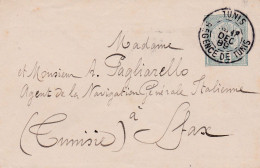 TUNIS
DEC
REGENCE DE TUNIS
Madame
et Monsieur A. Pagliarello
Agent de la Navigation Générale Italienne
à
(Tunisie) Sfax